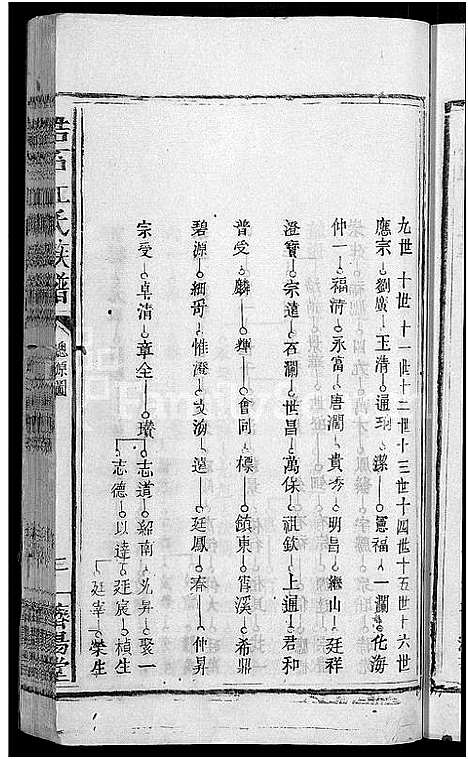 九世 十世 十一世 十二世 十三世 十四世 十五世 十六世
應宗 劉廣 玉清 通玒 潔 憲福 一瀾 化海
仲一 福清 永富 唐潤 貴秀 明昌 繼山 廷祥
澄寶 宗遠 石瀾 世昌 萬保 祖欽 上通 君和
普受 麟 輝 會同 標 鎮東 霄溪 希鼎
碧源 細哥 惟澄 文瀚 道 廷鳳 春 仲昇
宗受 卓清 章全 瓚 志道 紹南 光昇 聚一
志德 以達 廷宸 楨生
廷宰 榮生
江氏族譜 總源圖 三 濟陽堂